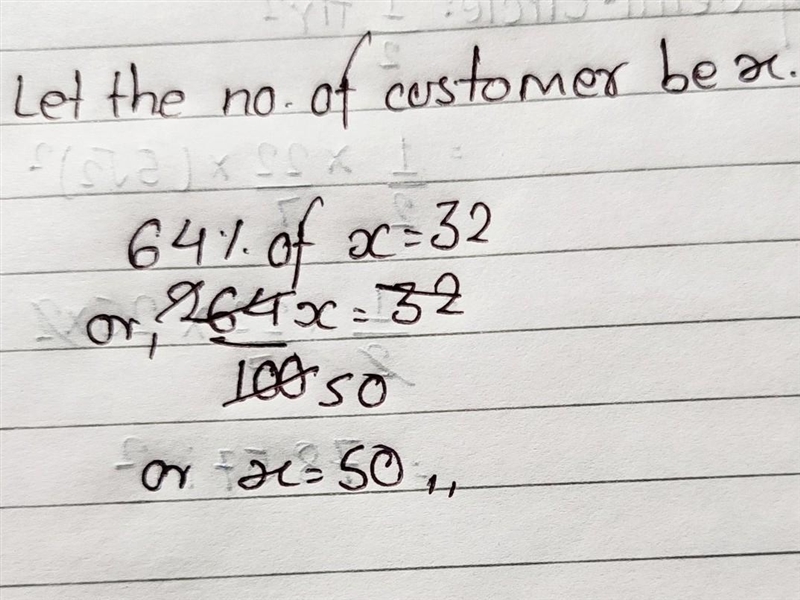 Let the no. of customer be x.
64% of x = 32
or, 264x = 32
100 50
or x = 50 ,,